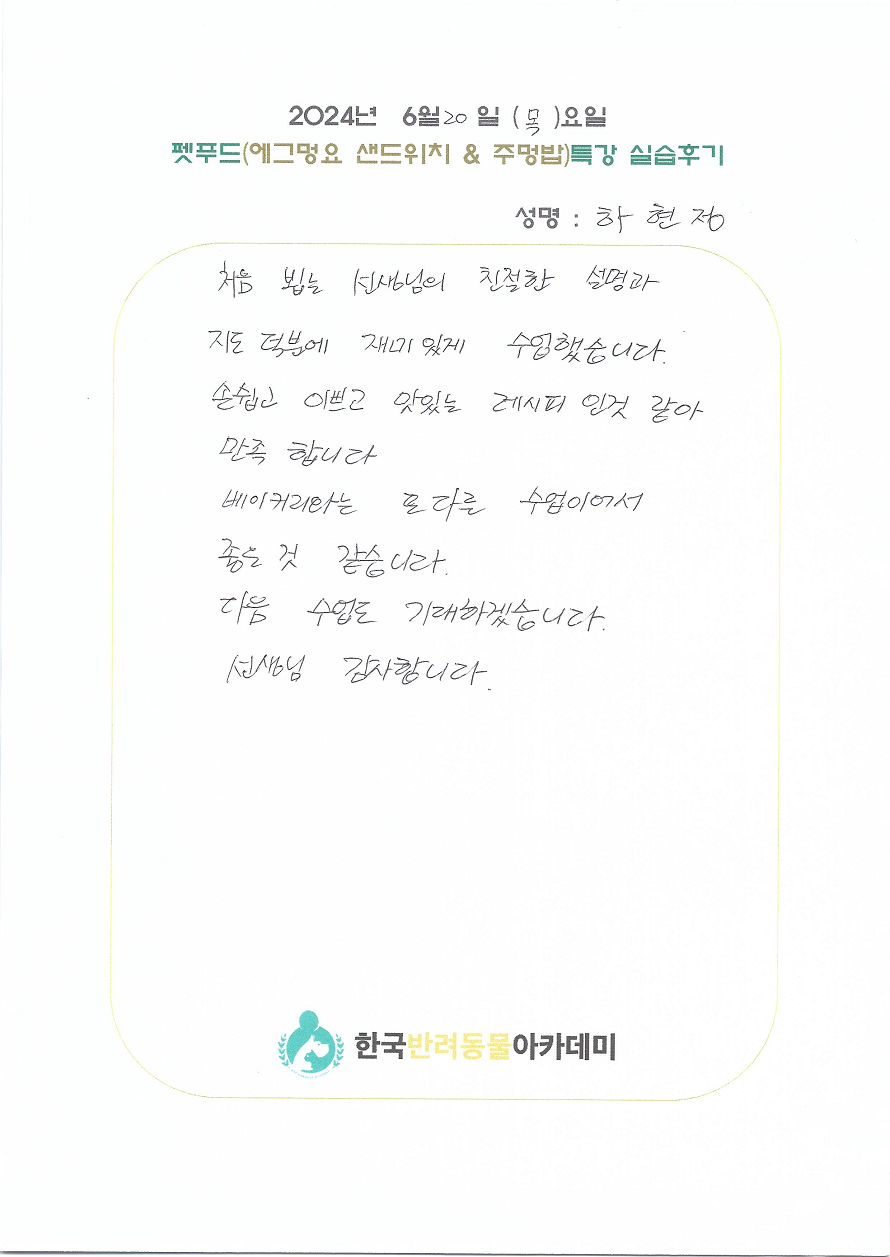 2024년 6월 20일 (목)요일
펫푸드(에그멍요 샌드위치 & 주멍밥)특강 실습후기
성명 : 하현정
처음 뵙는 선생님의 친절한 설명과
지도 덕분에 재미있게 수업했습니다.
손쉽고 이쁘고 맛있는 레시피 인것 같아
만족 합니다
베이커리와는 또 다른 수업이어서
좋은 것 같습니다.
다음 수업도 기대하겠습니다.
선생님 감사합니다.
한국반려동물아카데미